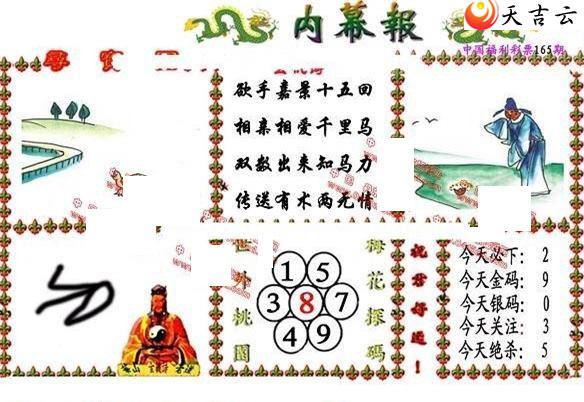 天吉云
内幕報
中国福利彩票165期
欲手嘉景十五回
相亲相爱千里马
双数出来知马力
传送有术两无情
世外桃園
1 5
3 8 7
4 9
梅花探碼
祝君好運！
今天必下：2
今天金码：9
今天银码：0
今天关注：3
今天绝杀：5